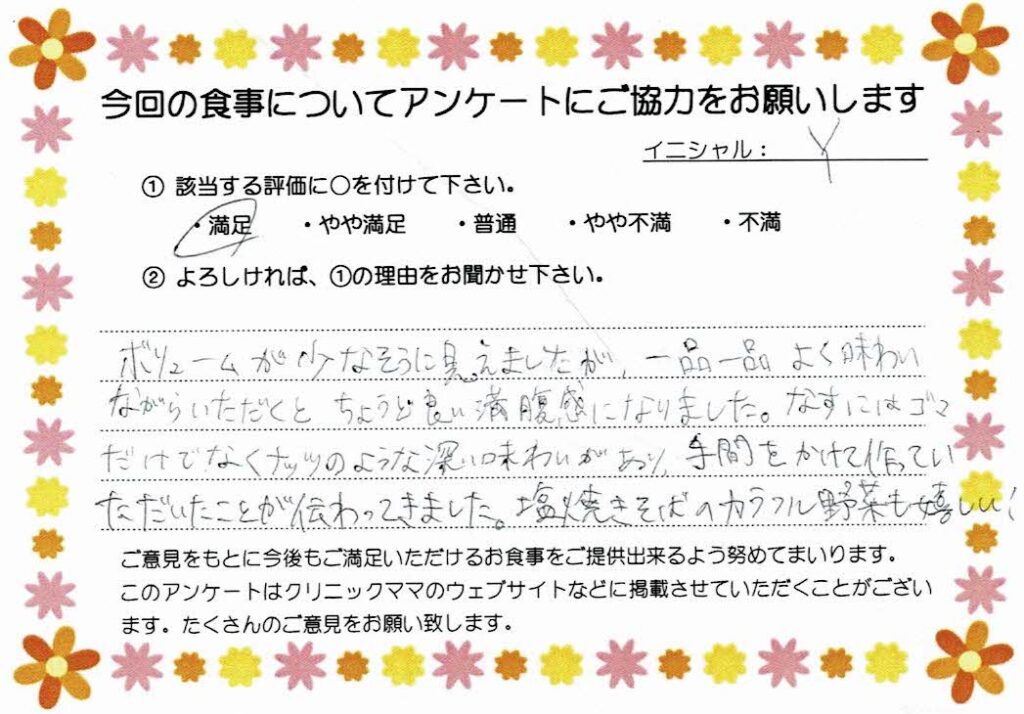 今回の食事についてアンケートにご協力をお願いします
イニシャル： Y
① 該当する評価に○を付けて下さい。
・満足 ・やや満足 ・普通 ・やや不満 ・不満
② よろしければ、①の理由をお聞かせ下さい。
ボリュームが少なそうに見えましたが、一品一品 よく味わい
ながらいただくと ちょうど良い満腹感になりました。なすにはゴマ
だけでなくナッツのような深い味わいがあり、手間をかけて作ってい
ただいたことが伝わってきました。塩焼きそばのカラフル野菜も嬉しい！
ご意見をもとに今後もご満足いただけるお食事をご提供出来るよう努めてまいります。
このアンケートはクリニックママのウェブサイトなどに掲載させていただくことがござい
ます。たくさんのご意見をお願い致します。